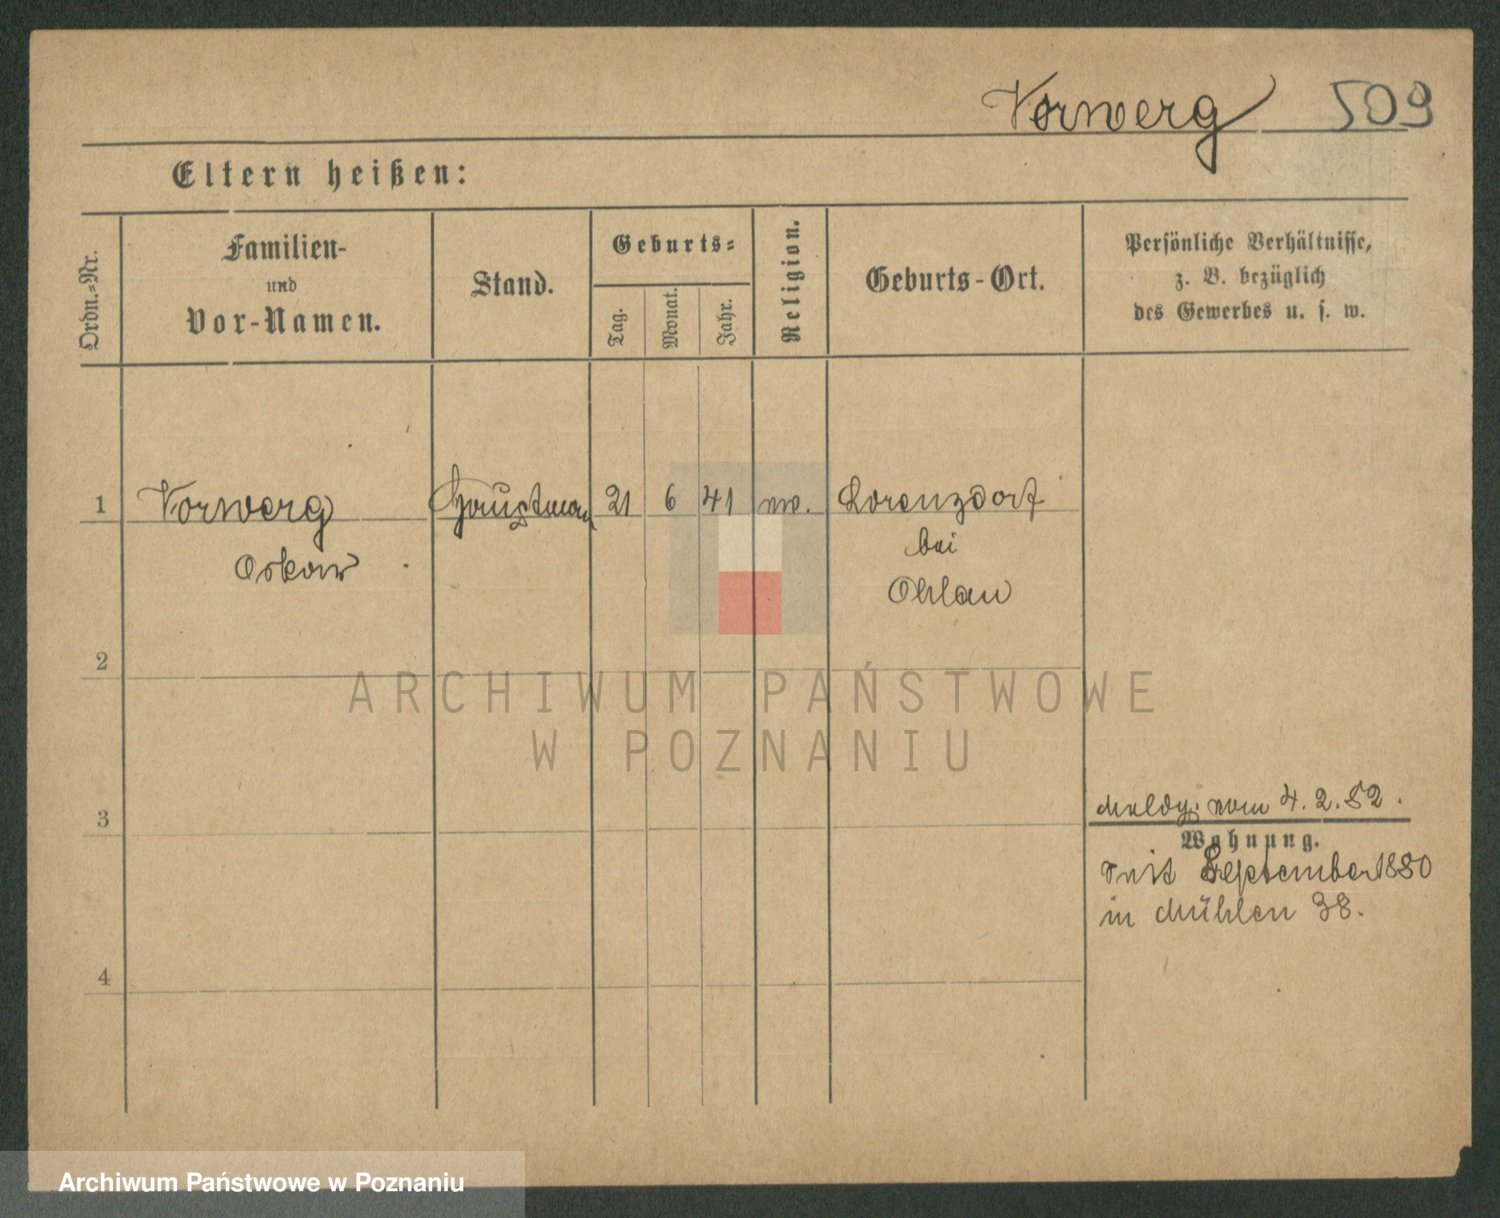 Vorwerg 509
Eltern heißen:
Ordn.=Nr.
Familien-
und
Vor-Namen.
Stand.
Geburts=
Tag.
Monat.
Jahr.
Religion.
Geburts-Ort.
Persönliche Verhältnisse,
z. B. bezüglich
des Gewerbes u. s. w.
1 Vorwerg Hauptmann 21 6 41 ev. Lorenzdorf
Oskar
bei
Ohlau
2
ARCHIWUM PAŃSTWOWE
W POZNANIU
3
Meldg. vom 4.2.82.
Wohnung.
Seit September 1880
in Mühlen 38.
4
Archiwum Państwowe w Poznaniu